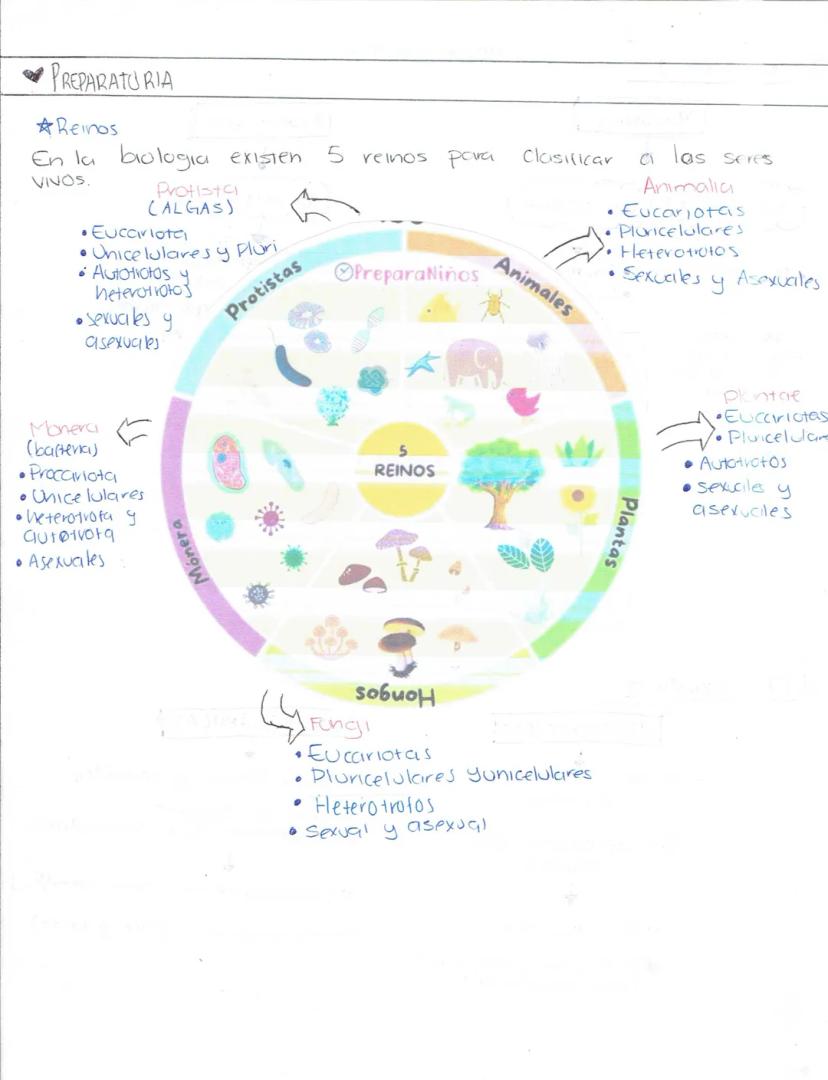 PREPARATURIA
Reinos
En la biologia existen 5 reinos para clasificar a los seres
vivos.
Protista
(ALGAS)
• Eucariota
• Unicelulares y Pluri
• Autotrotos y
heterotrotos
• sexuales y
asexuales
Animalia
• Eucariotas
• Pluricelulares
• Heterotrotos
• Sexuales y Asexuales
Monera
(bacteria)
• Procariota
• Unicelulares
• heterotrota y
autotrota
• Asexuales
Plantae
• Eucariotas
• Pluricelular
• Autotrotos
• sexuales y
asexuales
PreparaNiños
Protistas
Animales
5
REINOS
Plantas
Mónera
Hongos
Fungi
• Eucariotas
• Pluricelulares y unicelulares
• Heterotrofos
• Sexual y asexual